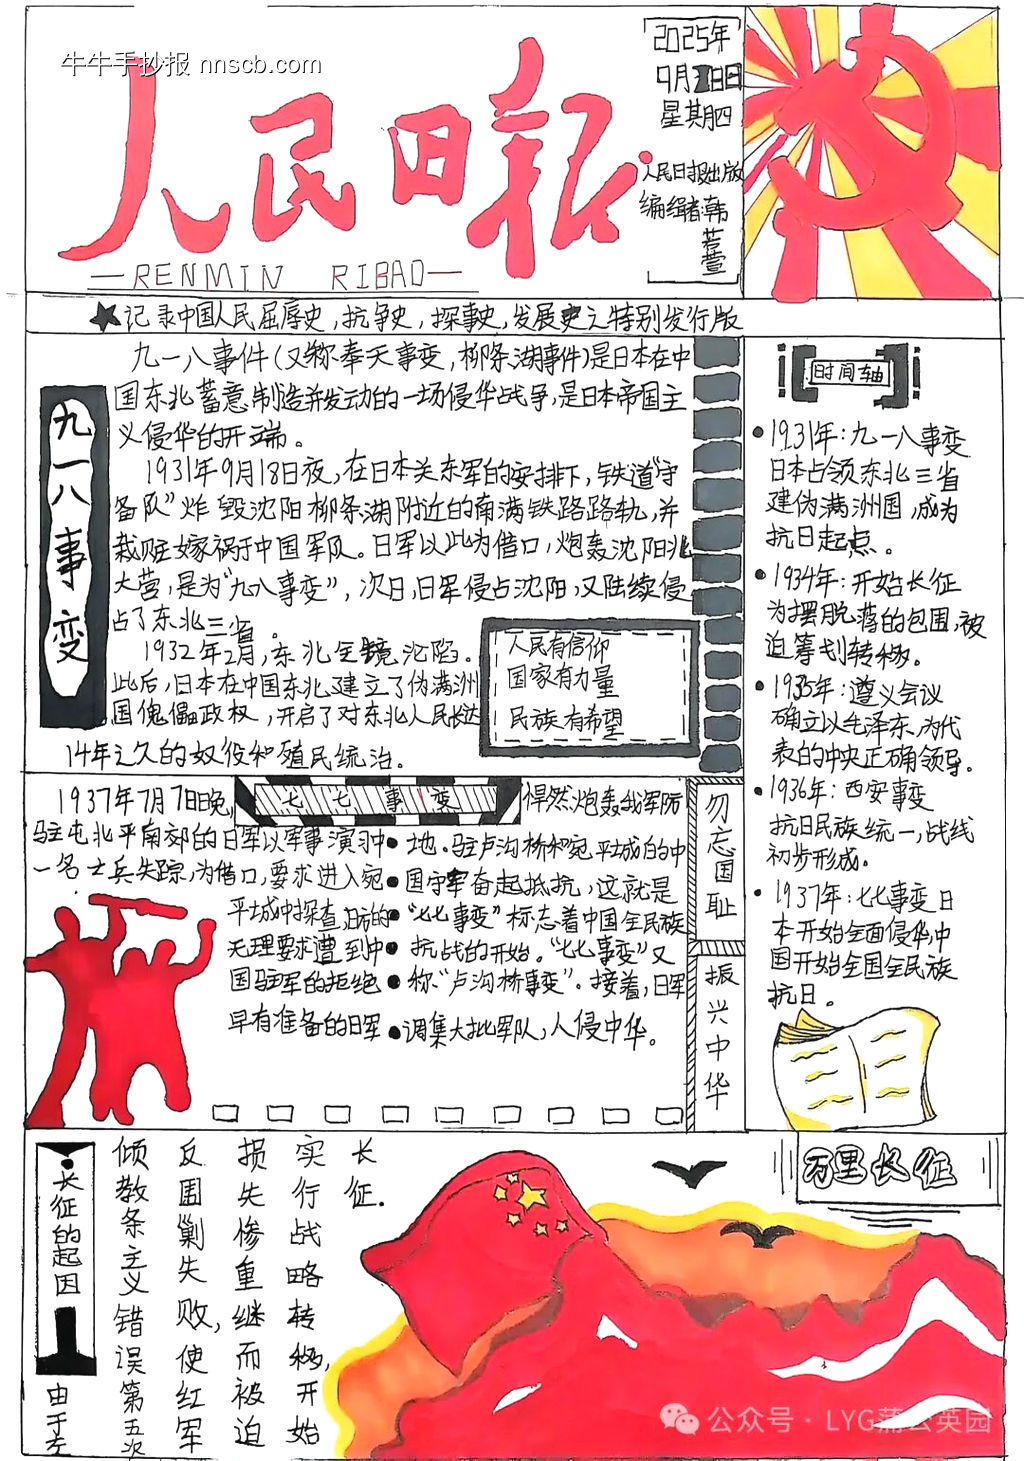 牛牛手抄报 nnscb.com
人民日报
RENMIN RIBAO
2025年
9月
日
星期四
人民日报出版
编缉者:韩
若
萱
★记录中国人民屈辱史,抗争史,探事史,发展史之特别发行版
九一八事变
九一八事件(又称奉天事变,柳条湖事件)是日本在中
国东北蓄意制造并发动的一场侵华战争,是日本帝国主
义侵华的开端。
1931年9月18日夜,在日本关东军的安排下,铁道“守
备队”炸毁沈阳柳条湖附近的南满铁路路轨,并
栽赃嫁祸于中国军队。日军以此为借口,炮轰沈阳北
大营,是为“九一八事变”,次日,日军侵占沈阳,又陆续侵
占了东北三省。
1932年2月,东北全镜沦陷。
此后,日本在中国东北建立了伪满洲
国傀儡政权,开启了对东北人民长达
14年之久的奴役和殖民统治。
人民有信仰
国家有力量
民族有希望
时间轴
1931年:九一八事变
日本占领东北三省
建伪满洲国,成为
抗日起点。
1934年:开始长征
为摆脱蒋的包围,被
迫筹划转移。
1935年:遵义会议
确立以毛泽东为代
表的中央正确领导。
1936年:西安事变
抗日民族统一战线
初步形成。
1937年:七七事变日
本开始全面侵华,中
国开始全国全民族
抗日。
七七事变
1937年7月7日晚,
驻屯北平南郊的日军以军事演习中
一名士兵失踪,为借口,要求进入宛
平城中探查,日方的
无理要求遭到中
国驻军的拒绝
早有准备的日军
悍然炮轰我军防
地。驻卢沟桥和宛平城的中
国守军奋起抵抗,这就是
“七七事变”标志着中国全民族
抗战的开始。“七七事变”又
称“卢沟桥事变”。接着,日军
调集大批军队,入侵中华。
勿忘国耻
振兴中华
长征的起因
由于左
倾教条主义错误第五次
反围剿失败,使红军
损失惨重继而被迫
实行战略转移,开始
长征.
万里长征
公众号·LYG蒲公英园